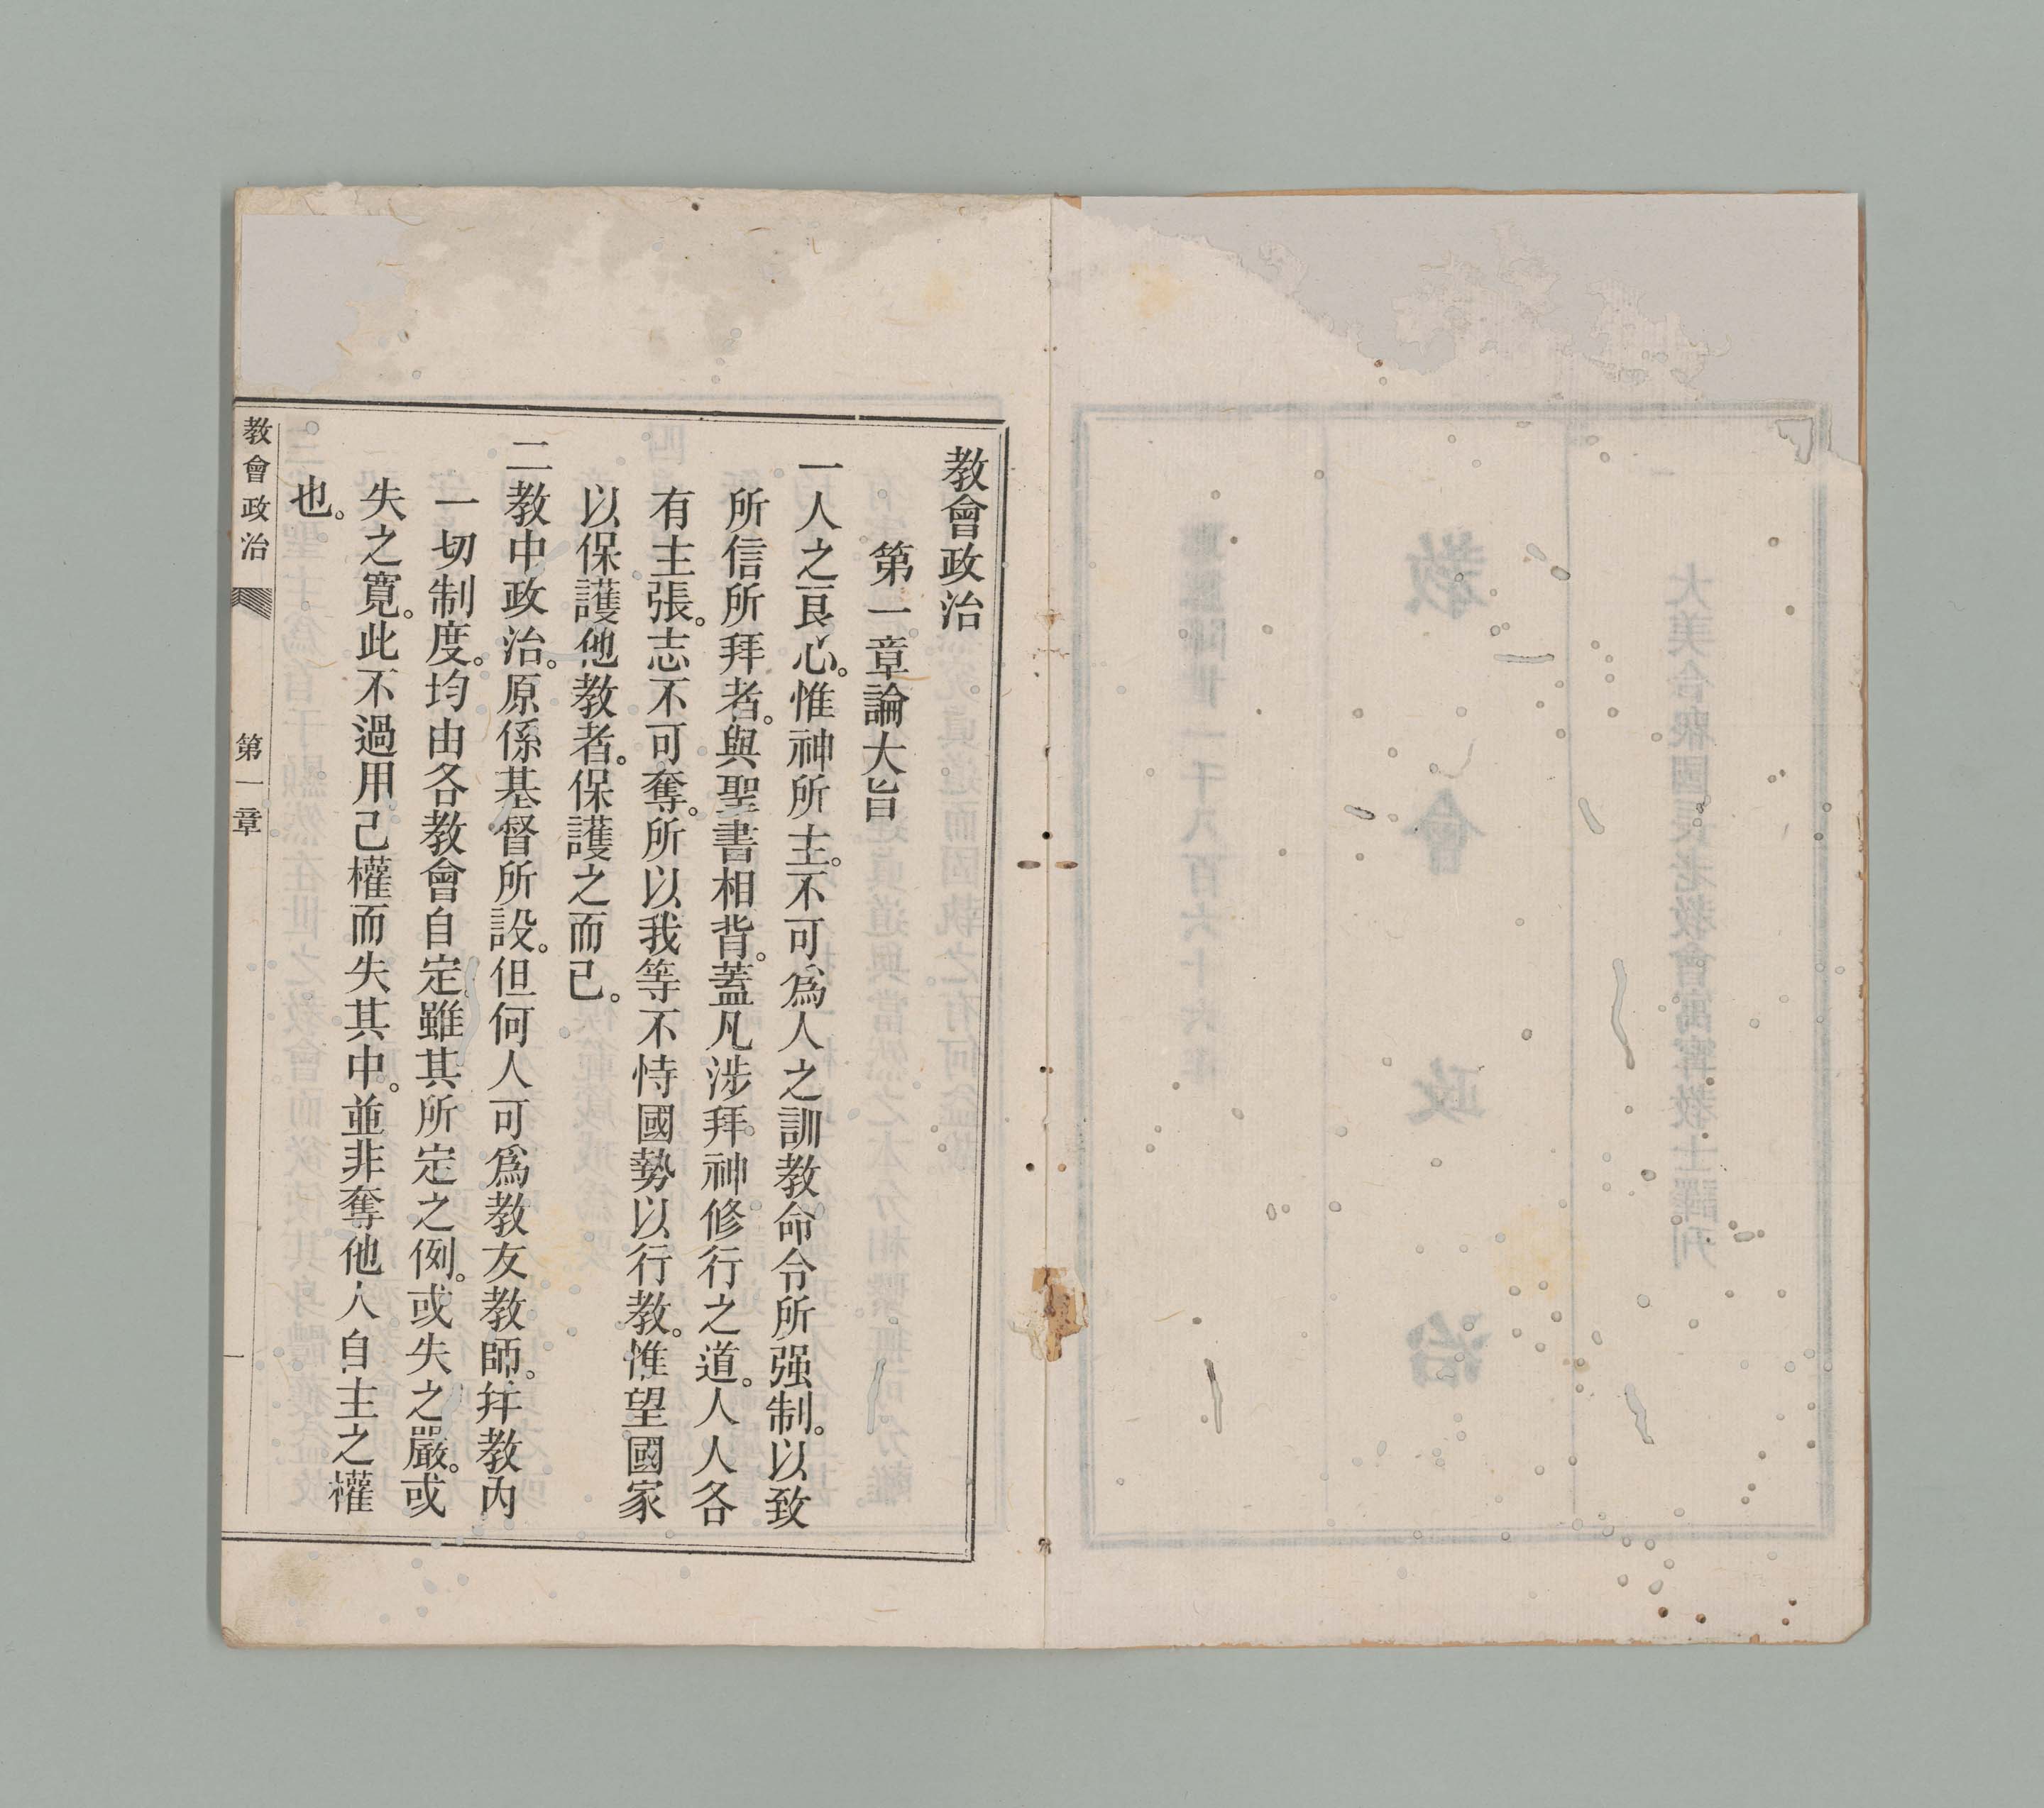 大美合衆國長老教會寓寧教士譯刋
教會政治
教會政治
第一章論大旨
一人之良心。惟神所主。不可爲人之訓教命令所强制。以致
所信所拜者。與聖書相背。蓋凡涉拜神修行之道。人人各
有主張。志不可奪。所以我等不恃國勢以行教。惟望國家
以保護他教者。保護之而已。
二教中政治。原係基督所設。但何人可爲教友教師。幷教內
一切制度。均由各教會自定。雖其所定之例。或失之嚴。或
失之寬。此不過用己權而失其中。並非奪他人自主之權
也。
教會政治 第一章 一